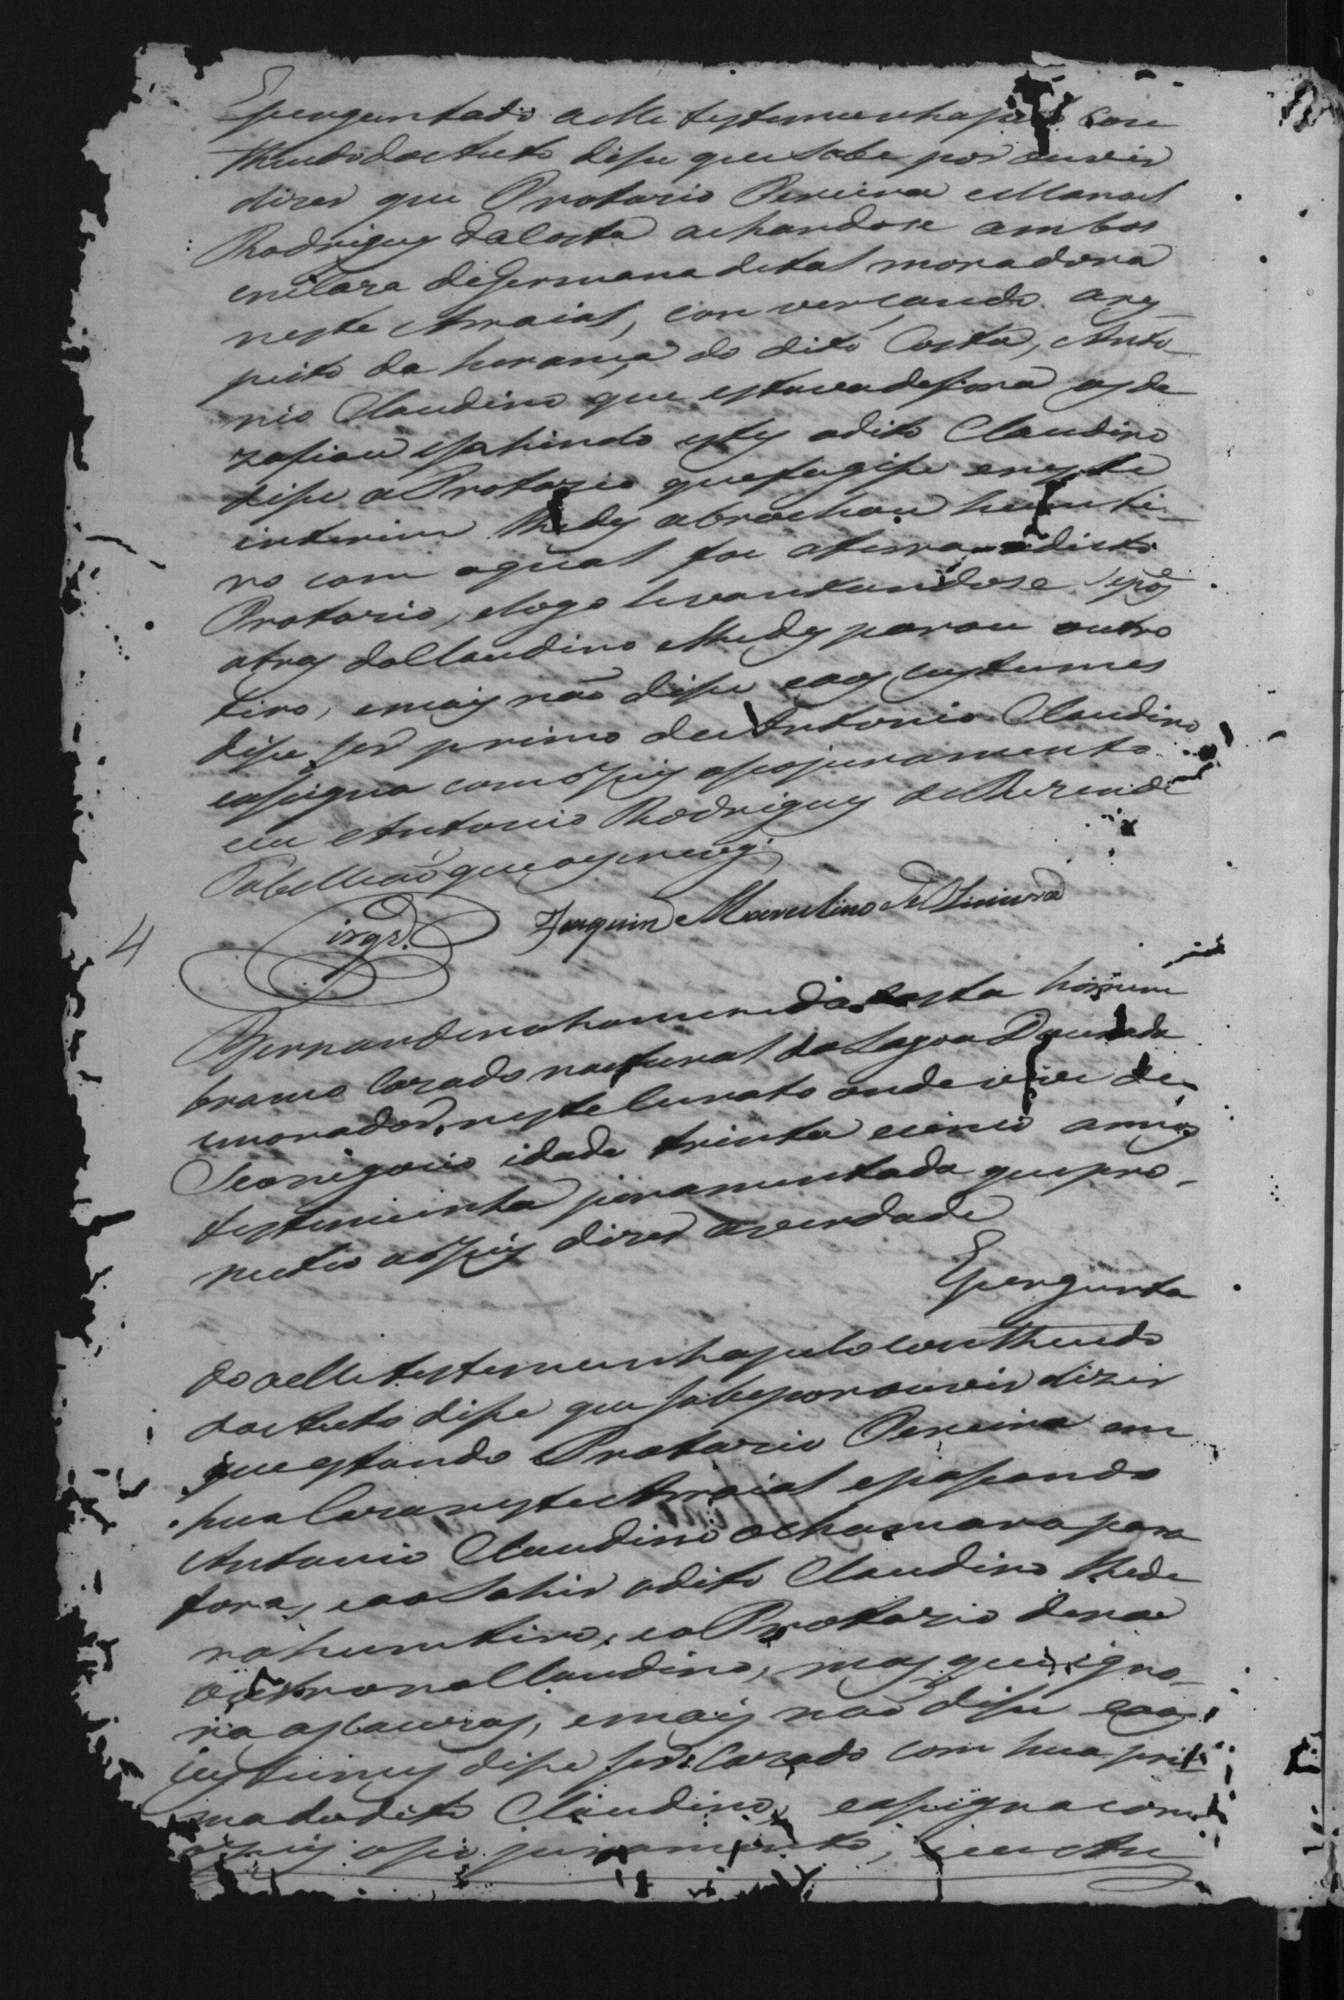 E perguntado a elle testemunha pelo Con
theudo do Auto dise que sabe por ouvir
dizer que Protazio Pereira e Manoel
Rodrigues da Costa achandose ambos
em Caza de Germana de tal moradora
neste Arraial, converçando ares-
peito da herança do dito Costa, Anto-
nio Claudino que estava de fora os de
zafiou e sahindo estes o dito Claudino
dise a Protazio que fugise e neste
interim lhe des abrochou hum ti-
ro com o qual foi a terra o dicto
Protazio, e logo levantandose se pos
atras do Claudino e lhe des parou outro
tiro, e mais não dise e aos custumes
dise ser primo de Antonio Claudino
e asigna com o Juis apos juramento
eu Antonio Rodrigues de Rezende
Tabellião que o escrevy
Joaquim Marcelino de Oliveira
4
Bernardino homem da Costa homem
branco Cazado natural da Lagoa Dourada
e morador neste Curato onde vive de
Seo negocio idade trinta e cinco annos
testemunha juramentada que pro-
meteo ao Juis dizer a verdade
E pergunta
do a elle testemunha pelo contheudo
do Auto dise que sabe por ouvir dizer
que estando Protazio Pereira em
hua Caza neste Arraial e pasando
Antonio Claudino o chamara para
fora, e ao Sahir o dito Claudino lhe de
ra hum tiro, e o Protazio dera
outro no Claudino, mas que igno-
ra as cauzas, e mais não dise e aos
custumes dise ser Cazado com hua pri
ma do dito Claudino, e asigna com
o Juis apos juramento, e eu An